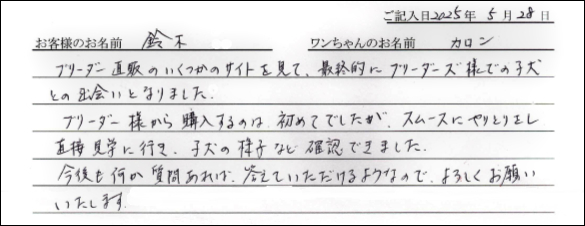 ご記入日2025年 5月28日
お客様のお名前 鈴木 ワンちゃんのお名前 カロン
ブリーダー直販のいくつかのサイトを見て、最終的にブリーダーズ様での子犬
との出会いとなりました。
ブリーダー様から購入するのは初めてでしたが、スムースにやりとりをし
直接見学に行き、子犬の様子など確認できました。
今後も何か質問あれば、答えていただけるようなので、よろしくお願い
いたします。